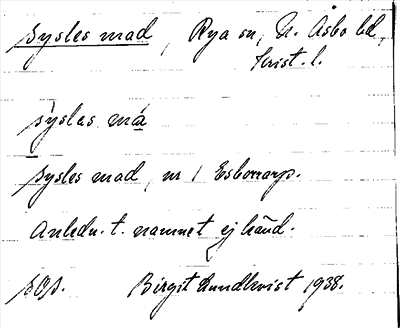 sysles mad, Rya sn, N. Åsbo hd,
Krist. l.
syslas må
sysles mad, nr 1 Esborrarp.
Anledn. t. namnet ej känd.
Birgit Lundkvist 1938.